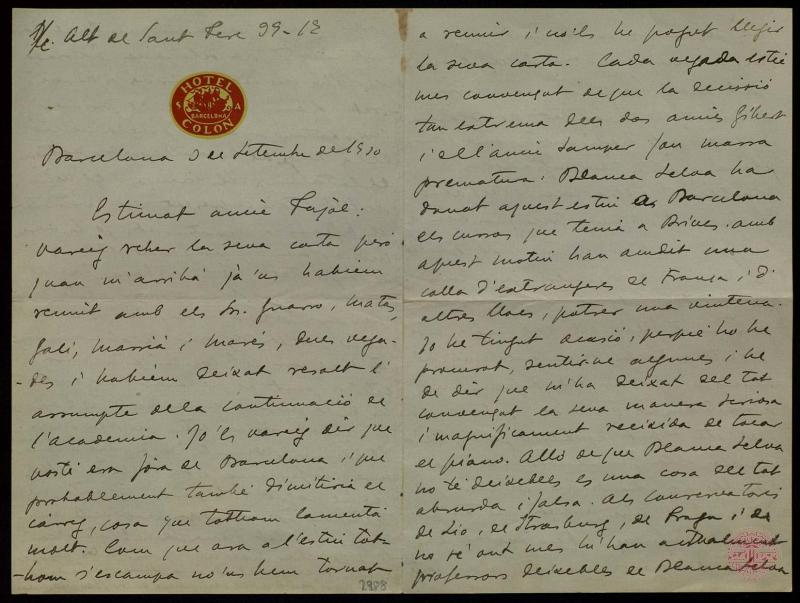 Alt de Sant Pere 99-12
HOTEL
S A
BARCELONA
COLON
Barcelona 3 de Setembre de 1930
Estimat amic Pujol:
vareig rebre la seva carta però
quan m'arribà ja'ns habiem
reunit amb els Srs. Guarro, Matas,
Galí, Massià i Marés, dues vega-
-des i habiem deixat resolt l'
assumpte de la continuació de
l'academia. Jo'ls vareig dir que
vosté era fora de Barcelona i que
probablement també dimitiria el
càrreg, cosa que tothom lamentà
molt. Com que ara a l'estiu tot-
-hom s'escampa no'ns hem tornat
2988
a reunir i no'ls he pogut llegir
la seva carta. Cada vegada estic
mes convençut de que la decissió
tan extrema dels dos amics Gibert
i de l'amic Samper fou massa
prematura. Blanca Selva ha
donat aquest estiu a Barcelona
els cursos que tenia a Brives. amb
aquest motiu han acudit una
colla d'extrangers de França i d'
altres llocs, potser una vintena.
Jo he tingut ocasió, perquè ho he
procurat, sentirne algunes i he
de dir que m'ha deixat del tot
convençut la seva manera seriosa
i magnificament decidida de tocar
el piano. Allò de que Blanca Selva
no té deixebles es una cosa del tot
absurda i falsa. Als conservatoris
de Lio, de Strasburg, de Praga i de
no sé ont mes hi han actualment
professors deixebles de Blanca Selva